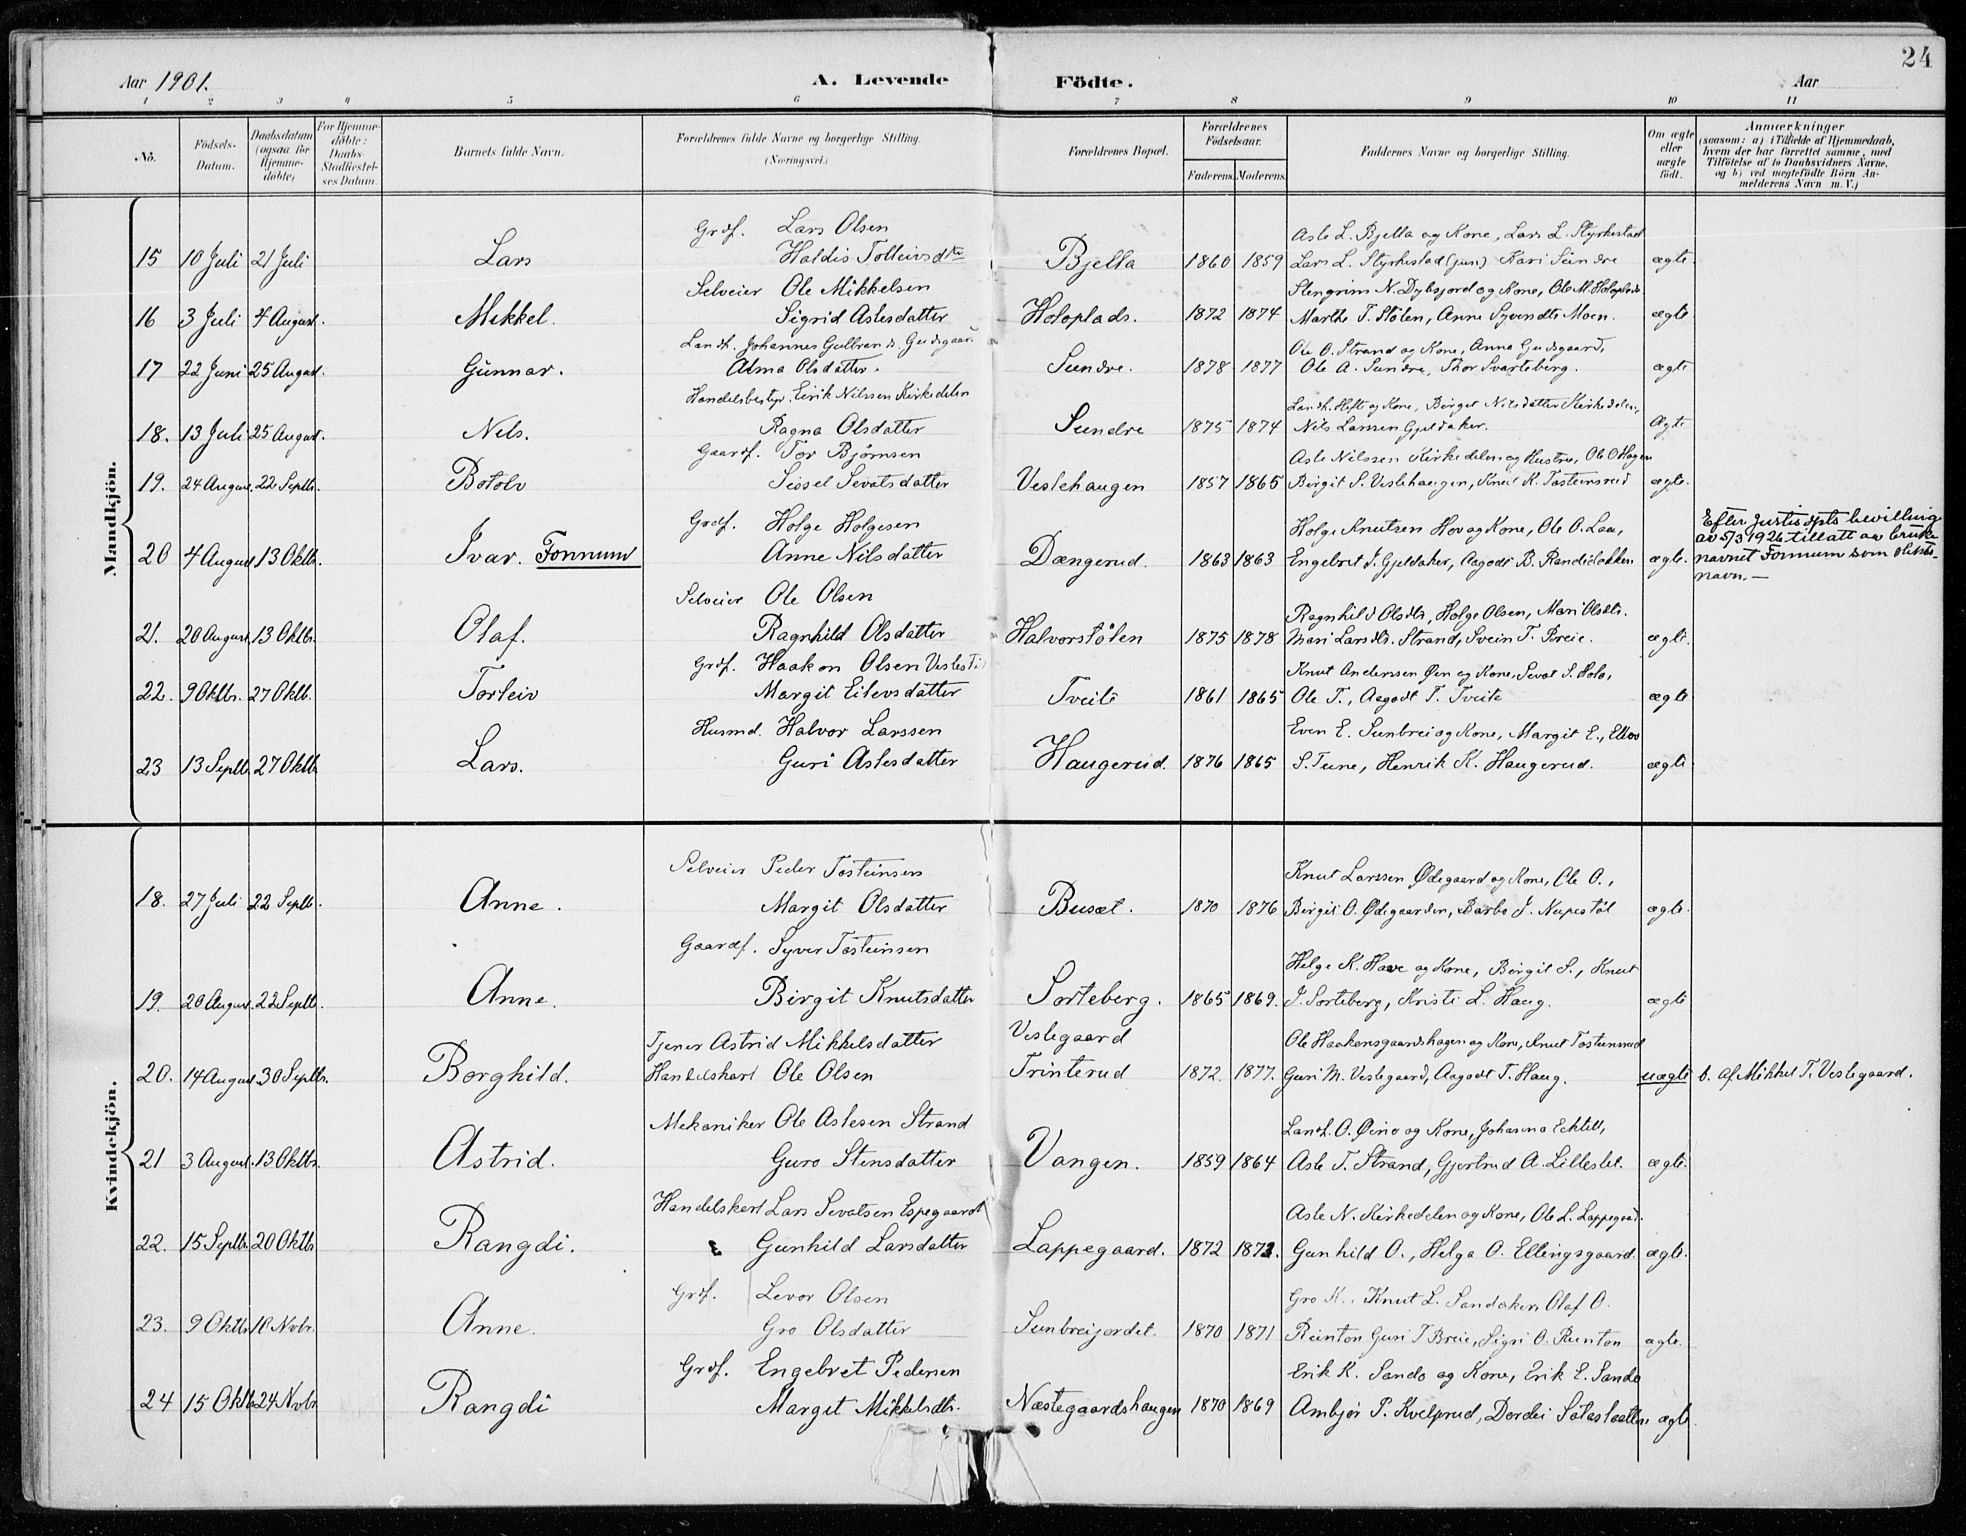 24
Aar 1901. A. Levende Födte. Aar
1 2 3 4 5 6 7 8 9 10 11
No. Födsels-Datum. Daabsdatum (ogsaa for Hjemme-döbte) For Hjemme-döbte: Daabs-Stadfæstel-ses Datum. Barnets fulde Navn. Forældrenes fulde Navne og borgerlige Stilling. (Næringsvei.) Forældrenes Bopæl. Forældrenes Födselsaar. Faderens Moderens Faddernes Navne og borgerlige Stilling. Om ægte eller uægte födt. Anmærkninger (saasom: a) i Tilfælde af Hjemmedaab, hvem der har forrettet samme, med Tilföielse af to Daabsvidners Navne, og b) ved uægtefödte Börn An-melderens Navn m. V.)
Mandkjön.
Grdf. Lars Olsen Asle L. Bjella og Kone, Lars L. Styrkestad
15 10 Juli 21 Juli Lars Haldis Tolleivsdtr Bjella 1860 1859 Lars L. Styrkestad (jun.) Kari Sundre ægte
Selveier Ole Mikkelsen Stengrim N. Dybsjord og Kone, Ole M. Holoplads
16 3 Juli 4 August. Mikkel. Sigrid Aslesdatter Holoplads. 1872 1874 Marthe T. Stölen, Anne Syvendts Moen. ægte
Landh. Johannes Gulbrands. Gudsgaar. Ole O. Strand og Kone, Anna Gudsgaard,
17 22 Juni 25 August. Gunnar. Alma Olsdatter. Sundre. 1878 1877 Ole A. Sundre, Thor Svarteberg. ægte
Handelsbestyr. Eirik Nilssen Kirkedelen Landh. Hift og Kone, Birget Nilsdatter Kirkedelen,
18. 13 Juli 25 August. Nils. Ragna Olsdatter Sundre 1875 1874 Nils Larssen Gjeldaker. Ægte
Gaardf. Tor Bjørnsen Asle Nilssen Kirkedelen og Hustru, Ole O Hagen
19. 24 August. 22 Septbr. Botolv Sissel Sevatsdatter Veslehaugen 1857 1865 Birgit S. Veslehaugen, Knut K. Tosteinsrud ægte.
Grdf. Holge Holgesen Holge Knutsen Hov og Kone, Ole O. Laa, Efter Justisdpts bevilling
20 4 August 13 Oktbr. Ivar. Fonnum Anne Nilsdatter Dængerud. 1863 1863 Engebret J. Gjeldaker, Aagodt B. Randidokken ægte. av 5/3 1926 tillatt av bruke navnet Fonnum som slekts-navn.—
Selveier Ole Olsen Ragnhild Olsdtr, Holge Olsen, Mari Olsdtr.
21. 20 August. 13 Oktbr. Olaf. Ragnhild Olsdatter Halvorstölen 1875 1878 Mari Larsdtr. Strand, Svein T. Breie. ægte.
Grdf. Haakon Olsen Knut Anderssen Øen og Kone, Sevat S. Holo,
22. 9 Oktbr. 27 Oktb. Torleiv Margit Eilevsdatter Tveito 1861 1865 Ole T., Aagodt T. Tveito ægte
Husmd. Halvor Larssen Even E. Sunbrei og Kone, Margit E., Ellov
23 13 Septbr. 27 Oktb. Lars. Guri Aslesdatter Haugerud. 1876 1865 S. Tune, Henrik K. Haugerud. ægte
Kvindekjön.
Selveier Peder Tosteinsen Knut Larssen Ødegaard og Kone, Ole O.,
18. 27 Juli 22 Septb. Anne. Margit Olsdatter Busæt. 1870 1876 Birgit O. Ødegaarden, Barbo J. Nupestöl ægte.
Gaardf. Syver Tosteinsen Helge K. Hove og Kone, Birgit S., Knut
19. 20 August. 22 Septb. Anne. Birgit Knutsdatter Sorteberg. 1865 1869. J. Sorteberg, Kristi L. Haug. ægte
Tjener Astrid Mikkelsdatter Veslegaard Ole Haakonsgaardshagen og Kone, Knut Tosteinsrud
20. 14 August 30 Septbr. Borghild. Handelskarl Ole Olsen Trinterud 1872. 1877. Guri M. Veslegaard, Aagodt T. Haug. uægte b. af Mikkel T. Veslegaard.
Mekaniker Ole Aslesen Strand Landh. O. Øino og Kone, Johanna
21 3 August. 13 Oktbr. Astrid. Guro Stensdatter Vangen. 1859 1864 Asle T. Strand, Gjertrud A. Lilleslet. ægte.
Handelskarl Lars Sevatsen Espegaard Asle N. Kirkedelen og Kone, Ole L. Lappegaard.
22. 15 Septbr. 20 Oktbr Rangdi. Gunhild Larsdatter Lappegaard. 1872 1873. Gunhild O., Helga O. Ellingsgaard. ægte.
Grdf. Levor Olsen Gro K., Knut L. Sandaker, Olaf O.
23. 9 Oktbr 10 Novbr. Anne. Gro Olsdatter Sunbreijordet. 1870 1871 Reinton Guri T Breie, Sigri O. Reinton ægte.
Grdf. Engebret Pedersen Erik K. Sando og Kone, Erik E. Sando
24 15 Oktb. 24 Nvbr Rangdi Margit Mikkelsdtr. Næstegaardshaugen 1870 1869 Ambjør P. Kvelprud, Dordei ægte.